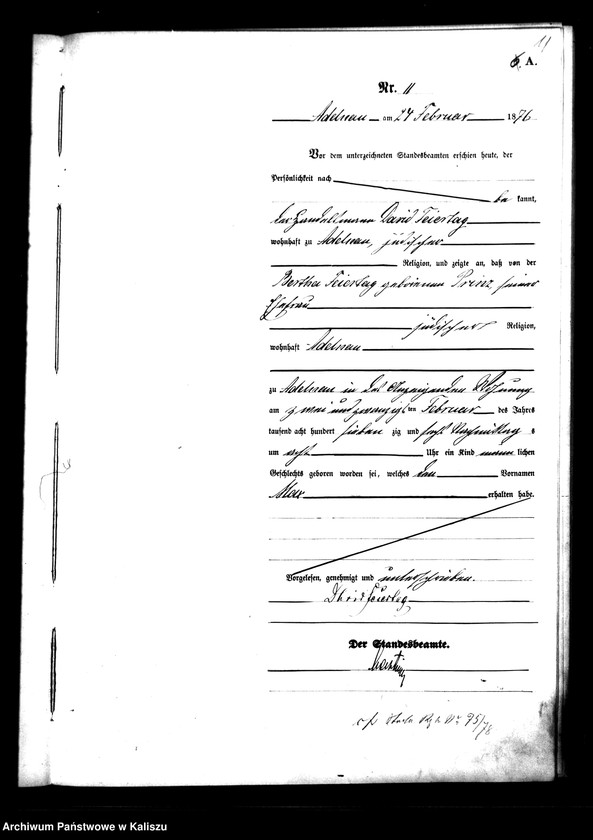 11
6. A.
Nr. 11
Adelnau am 24 Februar 1876
Vor dem unterzeichneten Standesbeamten erschien heute, der
Persönlichkeit nach
be kannt,
der Handelsmann David Feiertag
wohnhaft zu Adelnau, jüdischer
Religion, und zeigte an, daß von der
Bertha Feiertag geborenen Prinz, seiner
Ehefrau
jüdischer Religion,
wohnhaft Adelnau
zu Adelnau in des Anzeigenden Wohnung
am zwei und zwanzigsten Februar des Jahres
tausend acht hundert sieben zig und sechs Nachmittag s
um acht Uhr ein Kind männ lichen
Geschlechts geboren worden sei, welches den Vornamen
Max erhalten habe.
Vorgelesen, genehmigt und unterschrieben.
David Feiertag
Der Standesbeamte.
No 95/78
Archiwum Państwowe w Kaliszu